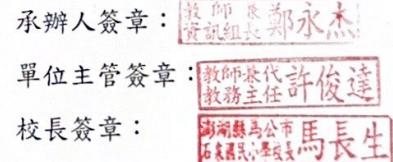 承辦人簽章：教師兼資訊組長鄭永杰
單位主管簽章：教師兼代教務主任許俊達
校長簽章：澎湖縣馬公市石泉國民小學校長馬長生